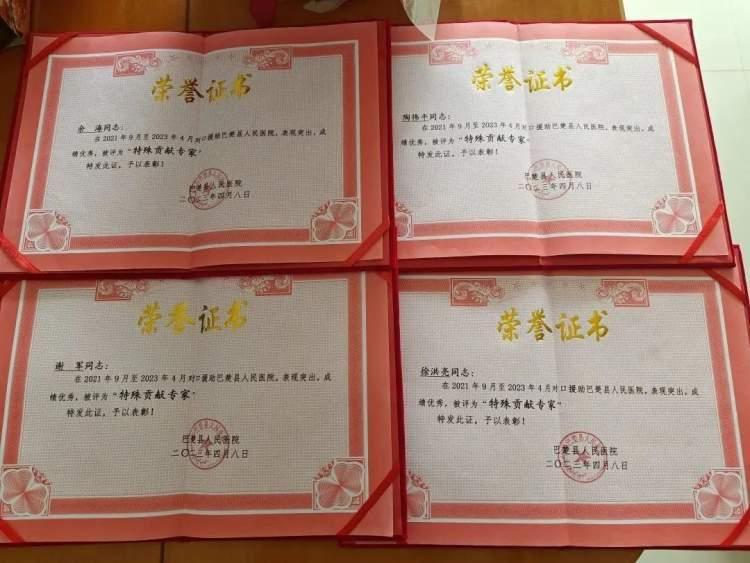 荣誉证书
余 海同志：
在2021年9月至2023年4月对口援助巴楚县人民医院，表现突出，成
绩优秀，被评为“特殊贡献专家”
特发此证，予以表彰！
巴楚县人民医院
二〇二三年四月八日
荣誉证书
陶伟平同志：
在2021年9月至2023年4月对口援助巴楚县人民医院，表现突出，成
绩优秀，被评为“特殊贡献专家”
特发此证，予以表彰！
巴楚县人民医院
二〇二三年四月八日
荣誉证书
谢 军同志：
在2021年9月至2023年4月对口援助巴楚县人民医院，表现突出，成
绩优秀，被评为“特殊贡献专家”
特发此证，予以表彰！
巴楚县人民医院
二〇二三年四月八日
荣誉证书
徐洪亮同志：
在2021年9月至2023年4月对口援助巴楚县人民医院，表现突出，成
绩优秀，被评为“特殊贡献专家”
特发此证，予以表彰！
巴楚县人民医院
二〇二三年四月八日